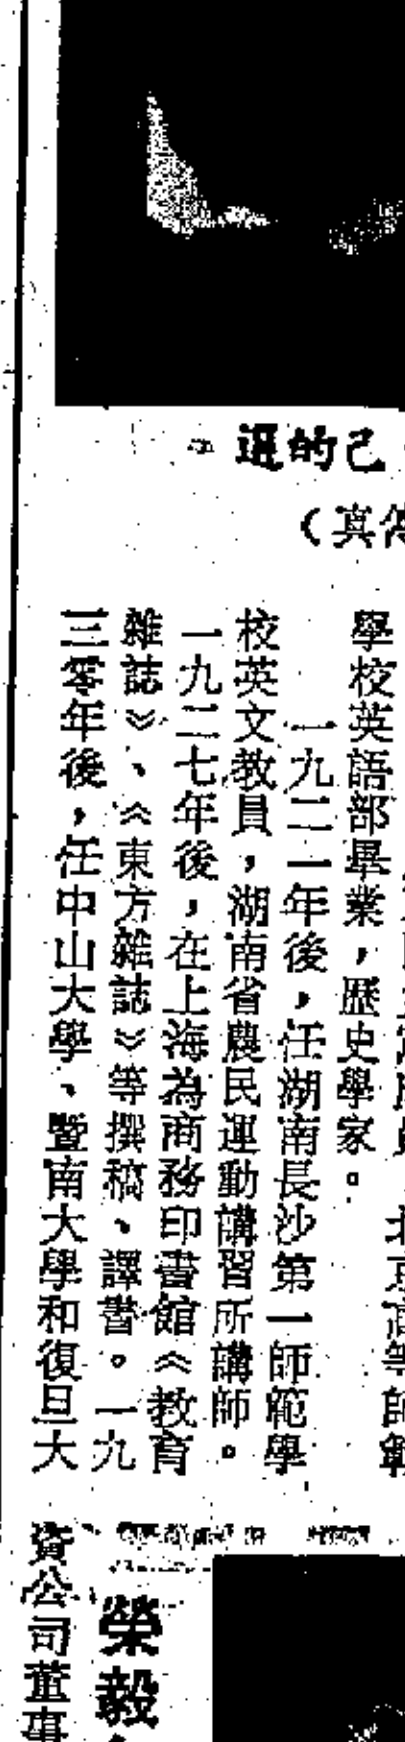 己的選
真）
北京高等師範
學校英語部畢業，歷史學家。
一九二一年後，任湖南長沙第一師範學
校英文教員，湖南省農民運動講習所講師。
一九二七年後，在上海為商務印書館《教育
雜誌》、《東方雜誌》等撰稿、譯書。一九
三零年後，任中山大學、暨南大學和復旦大
榮毅
資公司董事